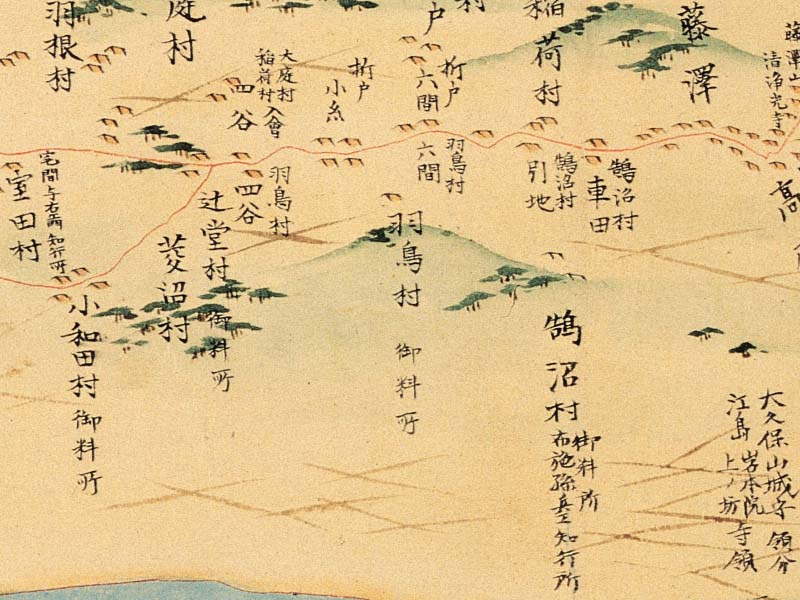 藤澤
藤澤山
清淨光寺
高
稲荷村
戸
村
折戸
六間
折戸
小糸
大庭村
稲荷村入會
四谷
庭村
羽根村
鵠沼村
車田
鵠沼村
引地
羽鳥村
六間
羽鳥村
四谷
辻堂村
御料所
菱沼村
宅間与右衛門知行所
室田村
小和田村
御料所
羽鳥村
御料所
鵠沼村
御料所
布施孫兵衛知行所
大久保山城守
領分
江島
岩本院
上ノ坊
寺領